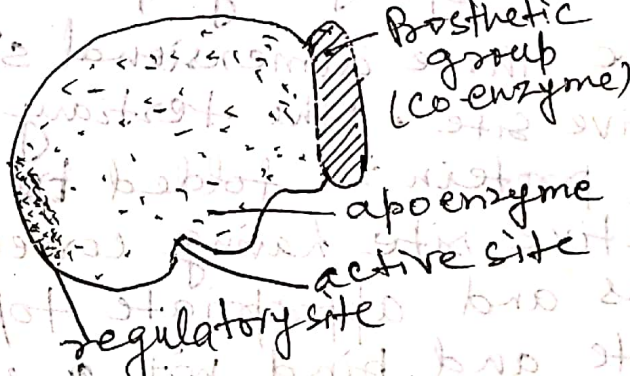 Prosthetic
group
(co-enzyme)
apoenzyme
active site
regulatory site